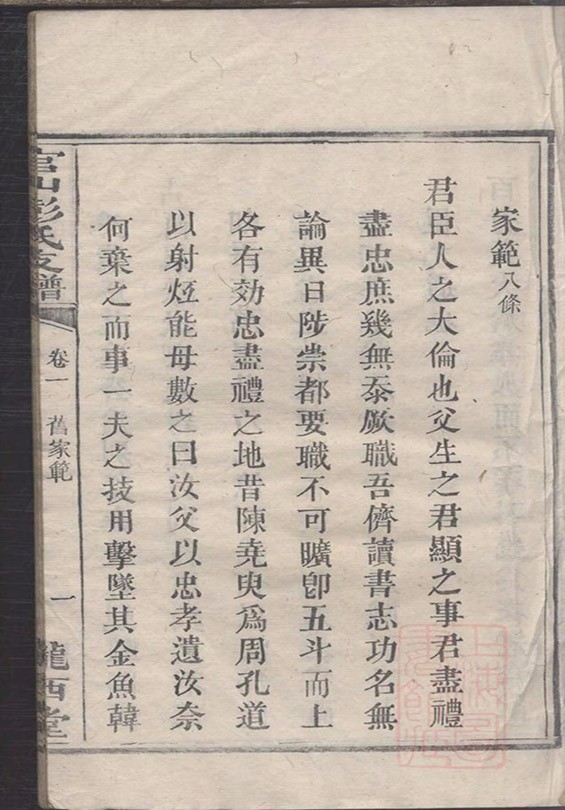 家範八條
君臣人之大倫也父生之君顯之事君盡禮
盡忠庶幾無忝厥職吾儕讀書志功名無
論異日陟崇都要職不可曠卽五斗而上
各有効忠盡禮之地昔陳堯臾爲周孔道
以射烴能母數之曰汝父以忠孝遺汝奈
何棄之而事一夫之技用擊墜其金魚韓
官山彭氏支譜
卷一 舊家範
一
隴西堂